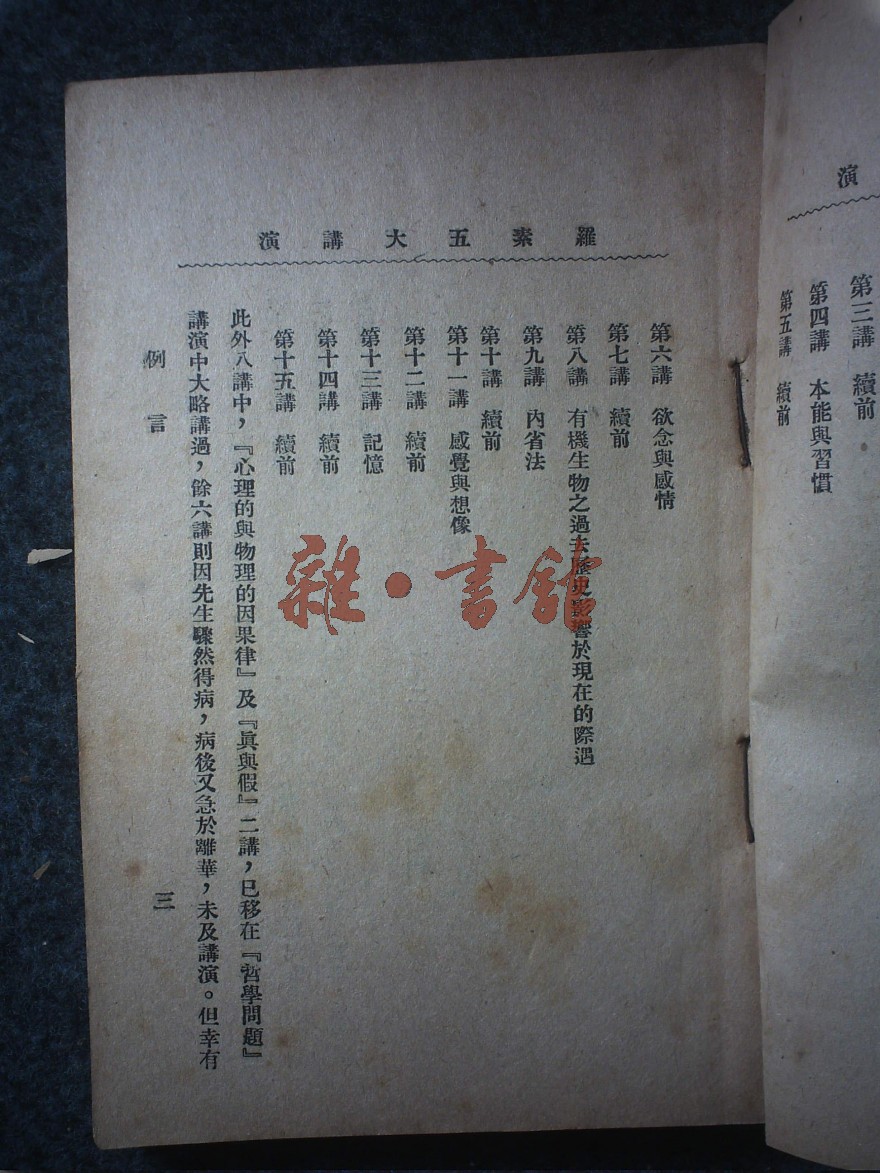 演
第三講　續前
第四講　本能與習慣
第五講　續前
羅素五大講演
第六講　欲念與感情
第七講　續前
第八講　有機生物之過去歷史影響於現在的際遇
第九講　內省法
第十講　續前
第十一講　感覺與想像
第十二講　續前
第十三講　記憶
第十四講　續前
第十五講　續前
此外八講中，『心理的與物理的因果律』及『眞與假』二講，已移在『哲學問題』
講演中大略講過，餘六講則因先生驟然得病，病後又急於離華，未及講演。但幸有
例言
三
雜·書館